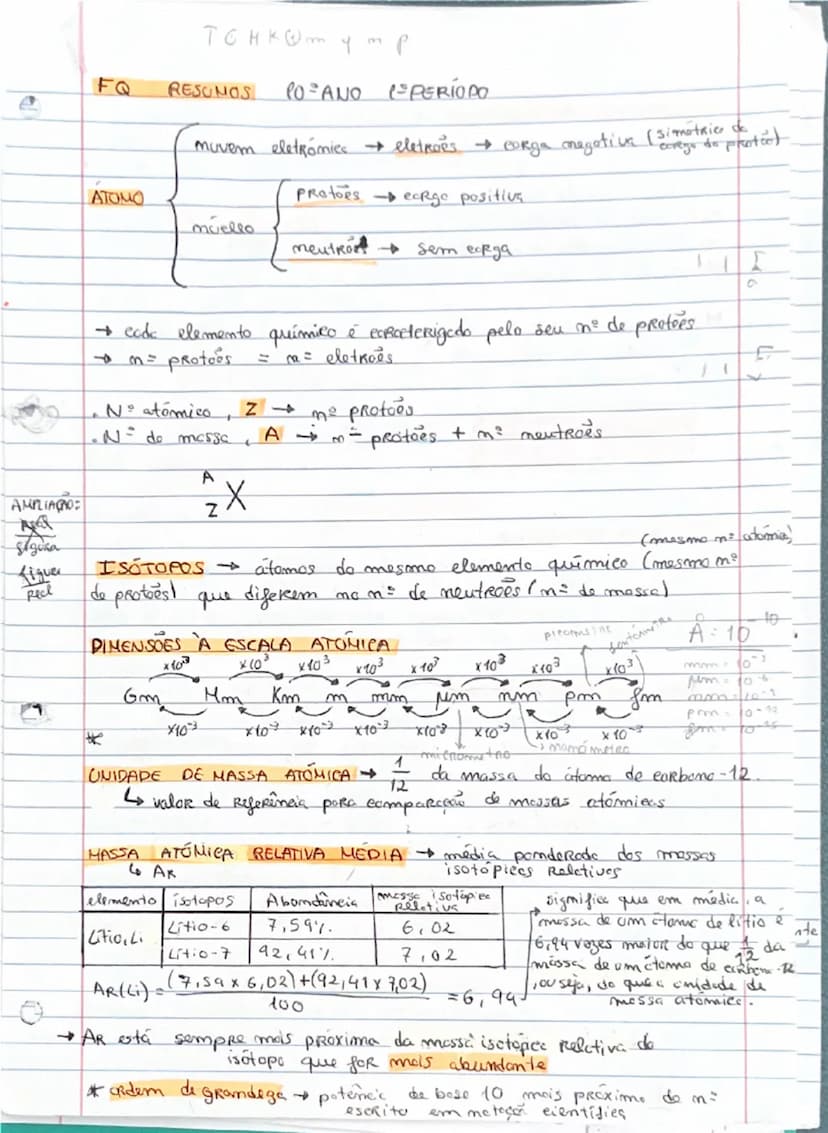 T G M K @ m y m p
FQ RESUMOS 10º ANO 1º PERÍODO
nuvem eletrónica → eletrões → carga negativa (simétrica da carga do protão)
ÁTOMO
protões → carga positiva
núcleo
neutrões → sem carga
→ cada elemento químico é caracterizado pelo seu nº de protões
→ nº protões = nº eletrões
. Nº atómico, Z → nº protões
. Nº de massa, A → nº protões + nº neutrões
A
Z X
AMPLIAÇÃO:
figura
figura
real
(mesmo nº atómico)
ISÓTOPOS → átomos do mesmo elemento químico (mesmo nº
de protões) que diferem no nº de neutrões (nº de massa)
DIMENSÕES À ESCALA ATÓMICA
picómetro
Å = 10⁻¹⁰
x10³ x10³ x10³ x10³ x10³ x10³ x10³ x10³
Gm Mm Km m mm µm nm pm fm
x10⁻³ x10⁻³ x10⁻³ x10⁻³ x10⁻³ x10⁻³ x10⁻³ x10⁻³
mm = 10⁻³
µm = 10⁻⁶
nm = 10⁻⁹
pm = 10⁻¹²
fm = 10⁻¹⁵
*
micrómetro
→ nanómetro
UNIDADE DE MASSA ATÓMICA → 1/12 da massa do átomo de carbono-12.
↳ valor de referência para comparação de massas atómicas
MASSA ATÓMICA RELATIVA MÉDIA → média ponderada das massas
↳ AR isotópicas relativas
elemento isótopos Abundância massa isotópica relativa
Lítio, Li Lítio-6 7,59% 6,02
Lítio-7 92,41% 7,02
AR(Li) = (7,59 x 6,02) + (92,41 x 7,02) / 100 = 6,94
significa que em média, a
massa de um átomo de lítio é
6,94 vezes maior do que 1/12 da
massa de um átomo de carbono-12
, ou seja, do que a unidade de
massa atómica.
→ AR está sempre mais próxima da massa isotópica relativa do
isótopo que for mais abundante
* ordem de grandeza → potência de base 10 mais próxima do nº
escrito em notação científica